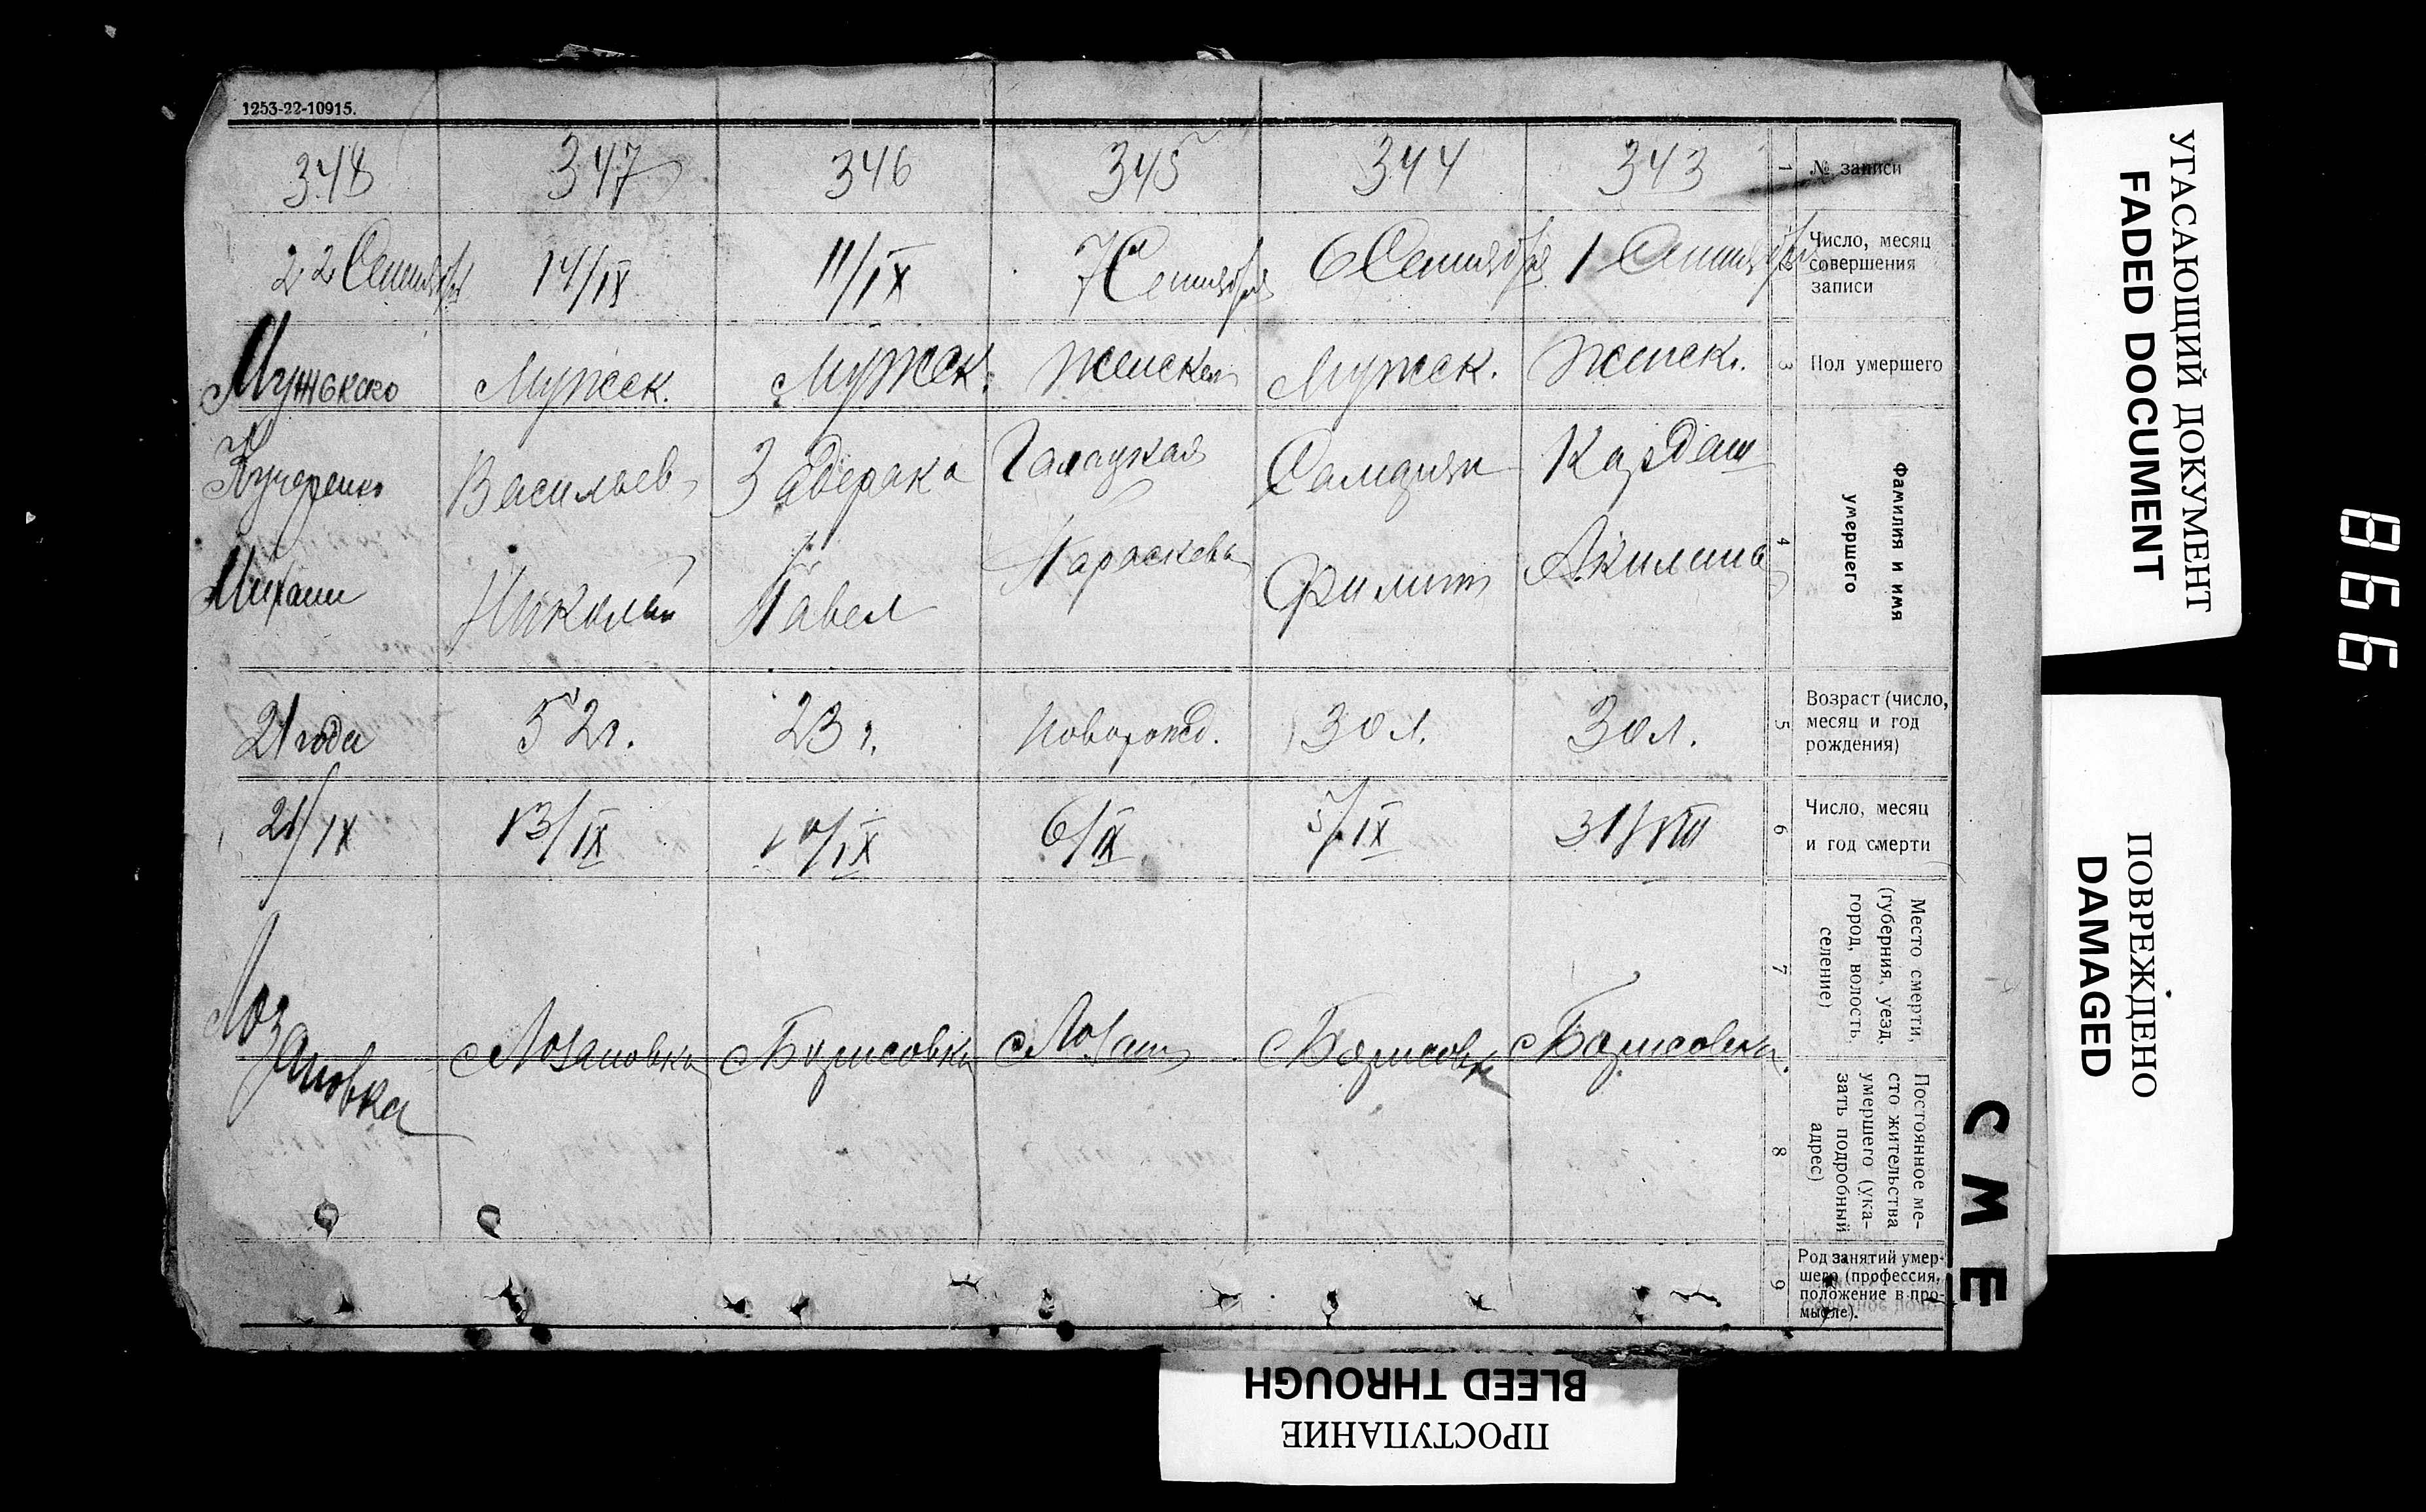 1253-22-10915.
348 347 346 345 344 343 1 № записи
22 Сентября 14/IX 11/IX 7 Сентября 6 Сентября 1 Сентября 2 Число, месяц
совершения
записи
Мужеск. Мужск. Женская Мужск. Женск. 3 Пол умершего
Кучеренко Васильев Задерака Галацкая Кардаш 4 Фамилия и имя
умершего
Михаил Николай Павел Параскева Филип Акилина
21 года 52 г. 23 г. Новорожд. 30 л. 30 л. 5 Возраст (число,
месяц и год
рождения)
21/IX 13/IX 10/IX 6/IX 5/IX 31/VIII 6 Число, месяц
и год смерти
Лозановка с Лозановка с Борисовка с Лозан с Борисовк с Борисовка. 7 Место смерти,
(губерния, уезд,
город, волость
селение)
8 Постоянное ме-
сто жительства
умершего (ука-
зать подробный
адрес)
9 Род занятий умер-
шего (профессия,
положение в про-
мысле).
УГАСАЮЩИЙ ДОКУМЕНТ
FADED DOCUMENT
ПОВРЕЖДЕНО
DAMAGED
ПРОСТУПАНИЕ
BLEED THROUGH
СМЕ
866